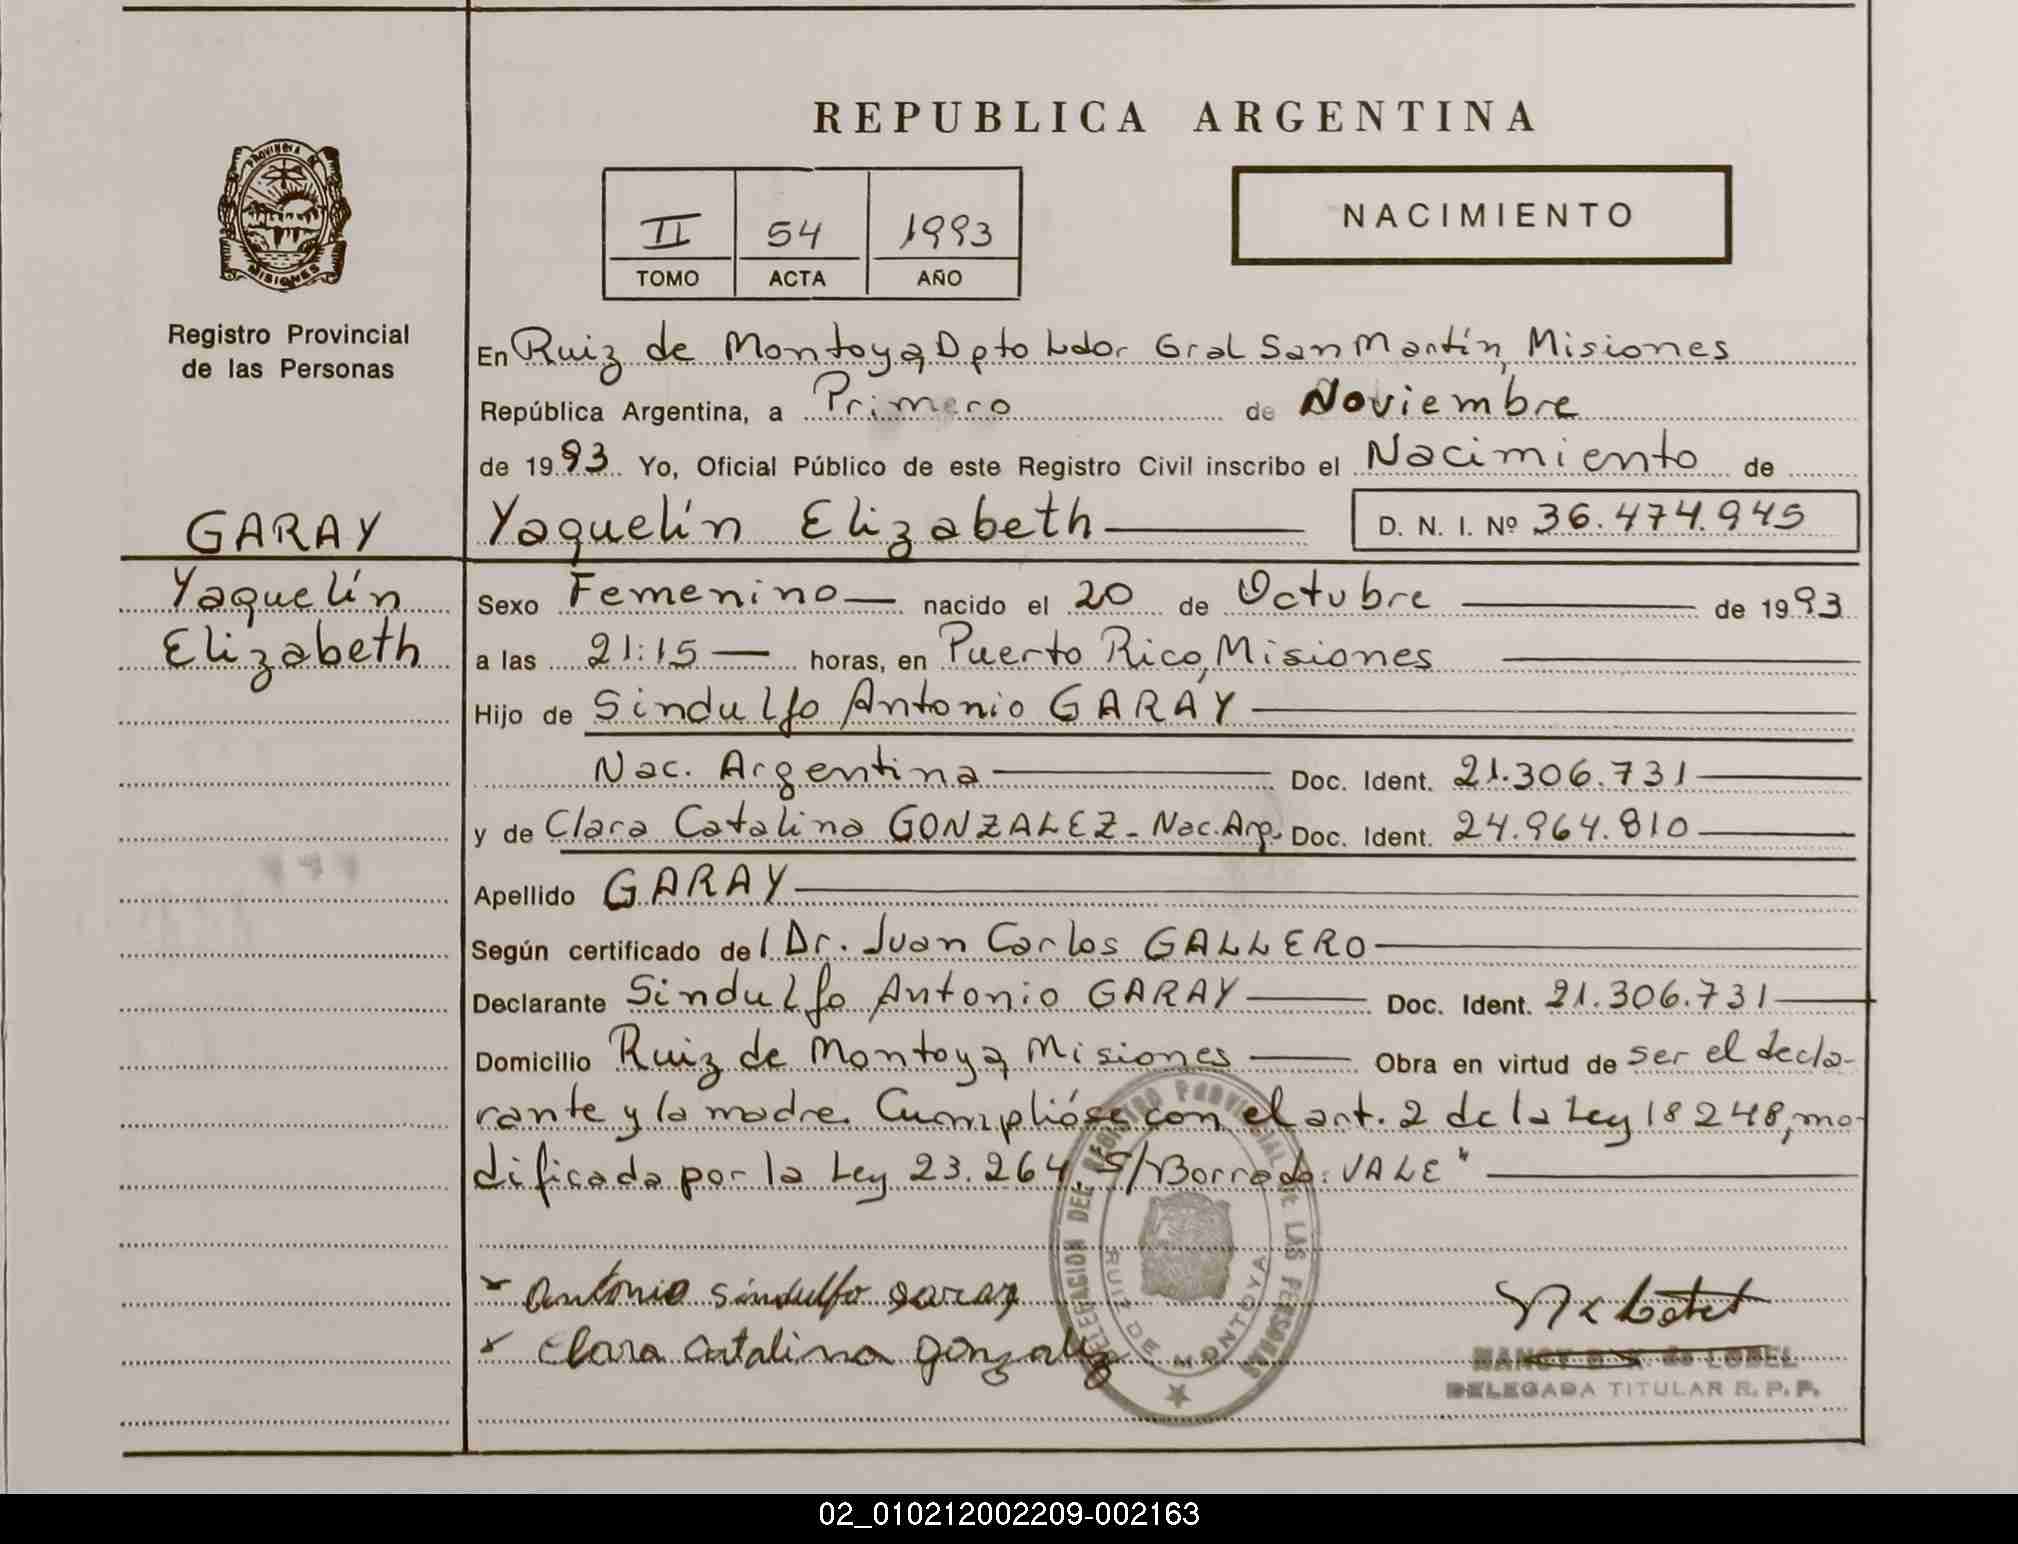 REPUBLICA ARGENTINA
PROVINCIA DE
MISIONES
Registro Provincial
de las Personas
II 54 1993
TOMO ACTA AÑO
NACIMIENTO
En Ruiz de Montoya, Dpto Ldor Gral San Martín, Misiones
República Argentina, a Primero de Noviembre
de 1993 Yo, Oficial Público de este Registro Civil inscribo el Nacimiento de
GARAY
Yaquelín Elizabeth
Yaquelín Elizabeth D. N. I. Nº 36.474.945
Sexo Femenino nacido el 20 de Octubre de 1993
a las 21:15 horas, en Puerto Rico, Misiones
Hijo de Sindulfo Antonio GARAY
Nac. Argentina Doc. Ident. 21.306.731
y de Clara Catalina GONZALEZ - Nac. Arg. Doc. Ident. 24.964.810
Apellido GARAY
Según certificado del Dr. Juan Carlos GALLERO
Declarante Sindulfo Antonio GARAY Doc. Ident. 21.306.731
Domicilio Ruiz de Montoya, Misiones Obra en virtud de ser el decla-
rante y la madre. Cumplióse con el art. 2 de la Ley 18248, mo-
dificada por la Ley 23.264. S/Borrado: VALE"
Antonio sindulfo garay
Clara Catalina gonzalez
DELEGACION DEL REGISTRO PROVINCIAL DE LAS PERSONAS
RUIZ DE MONTOYA
NANCY de LOBEL
DELEGADA TITULAR R. P. P.
02_010212002209-002163